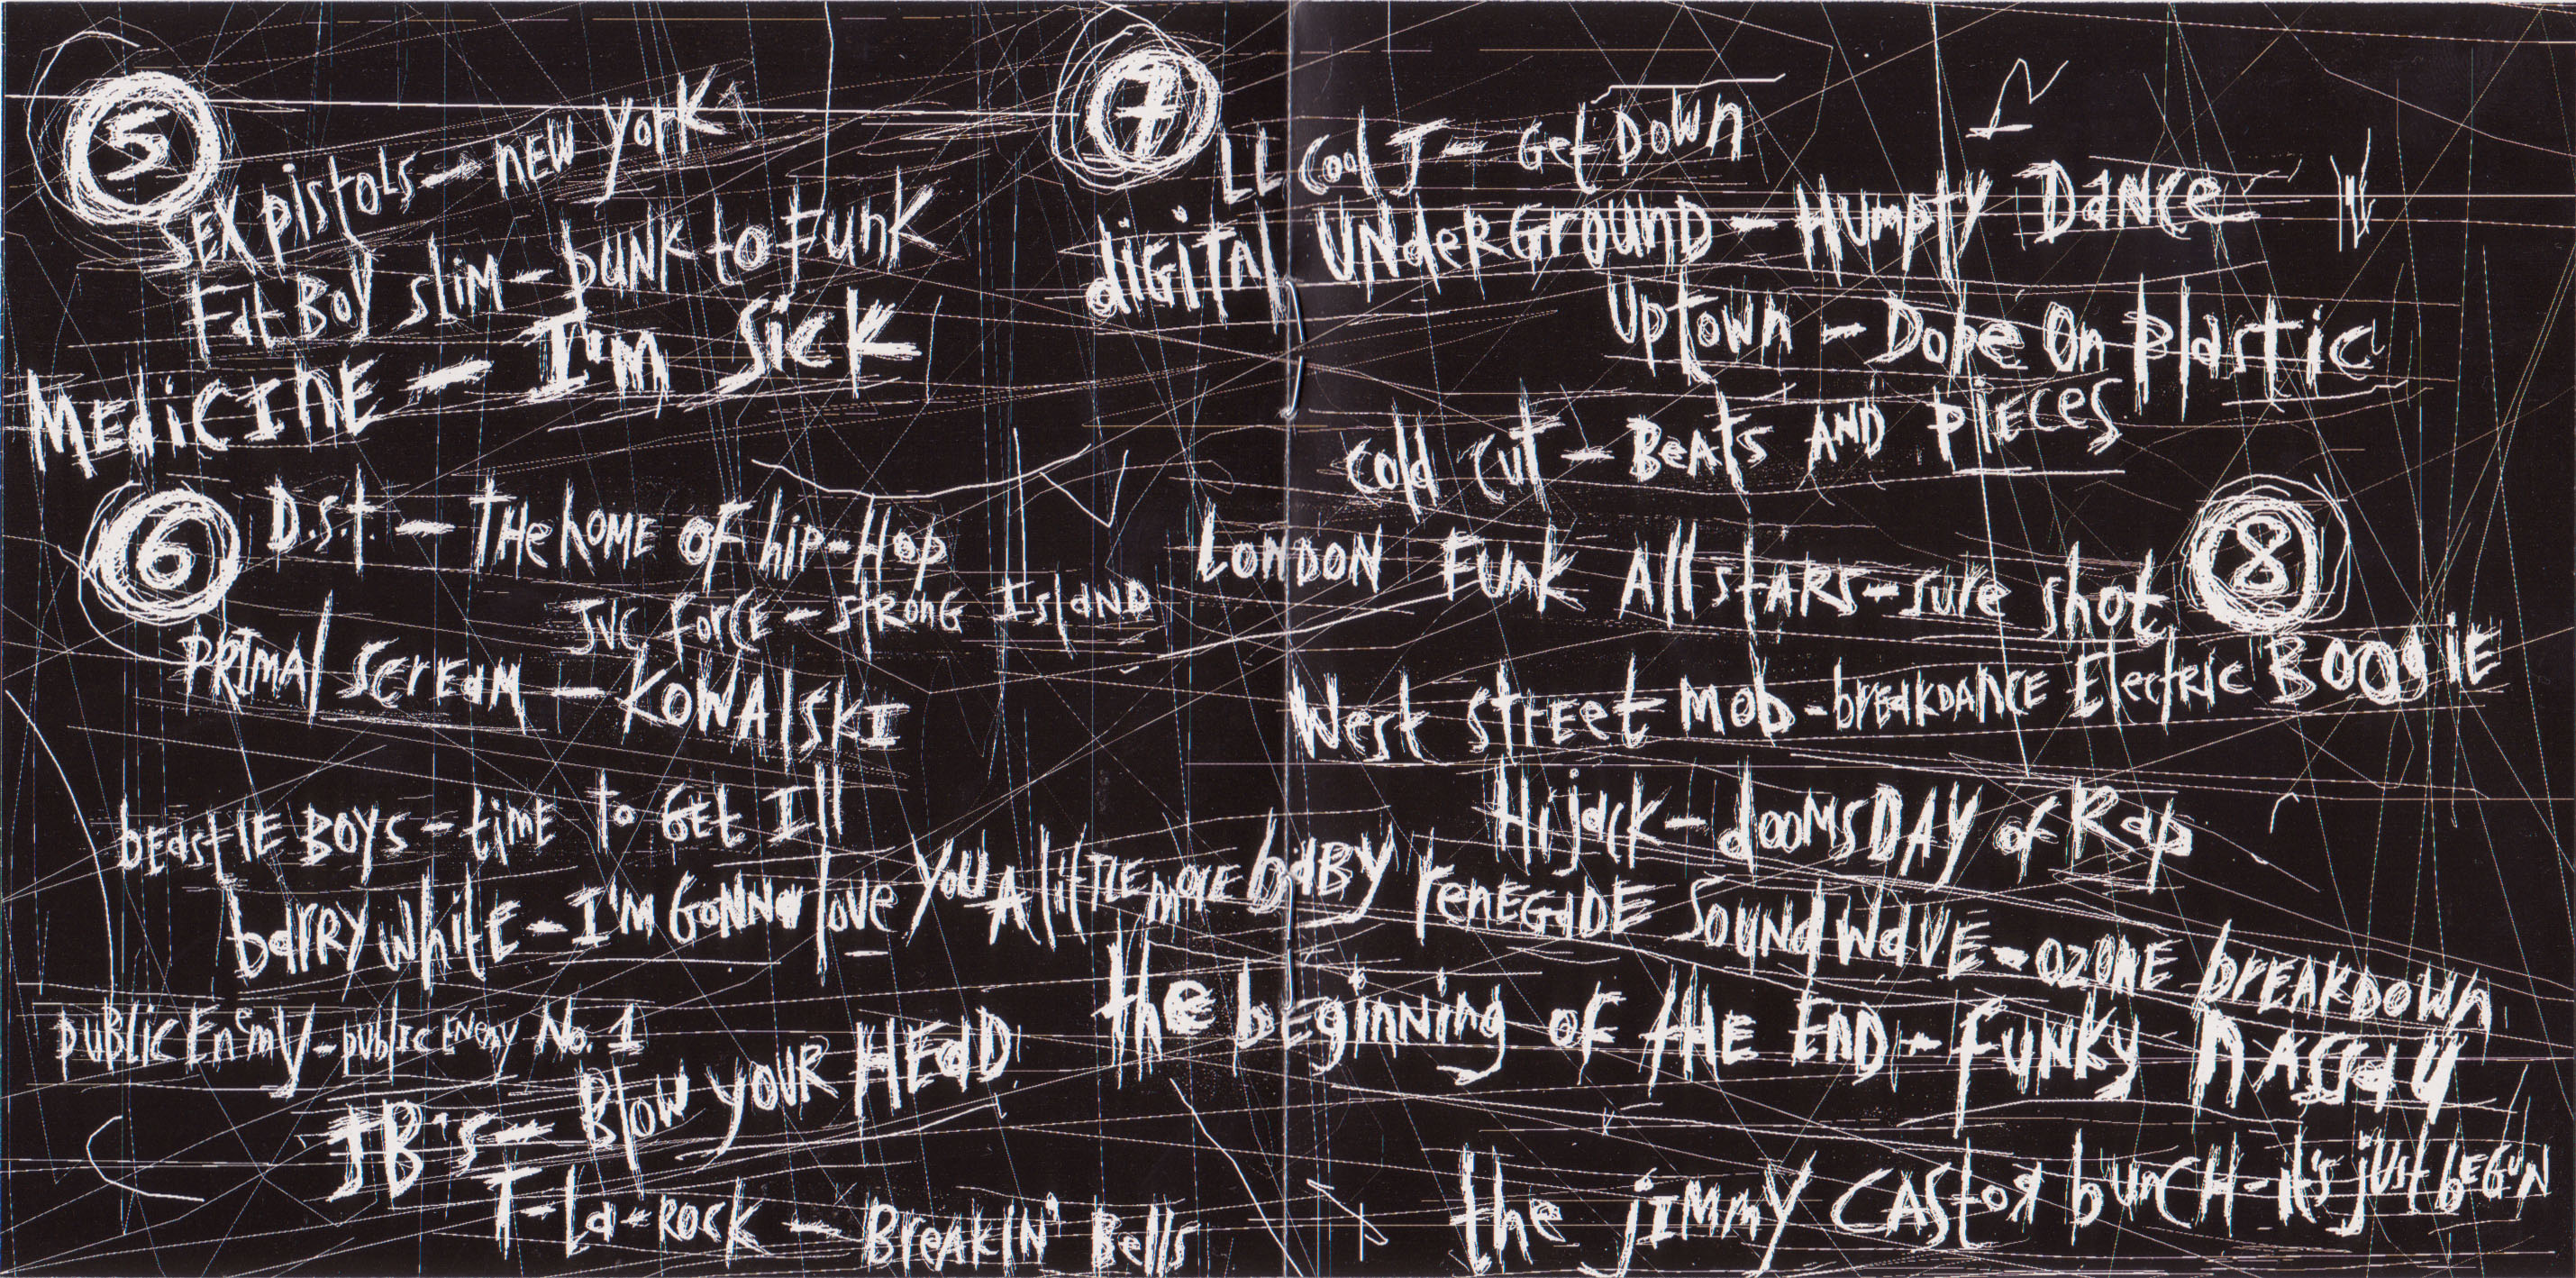 5
SEX pistols - NEW YORK
Fat Boy Slim - punk to Funk
MEdiCINE - I'm Sick
6
D.S.t. - THe hOME OF hip-Hop
JVC FORCE - STRONG IslAND
PRIMAl SCrEaM - KOWAlSKI
bEastIE BOYS - timE to GEt Ill
baRRY whitE - I'M GONNa love YOU A littlE moRE baBY
PUBLiC EnemY - publIC ENEmy No. 1
JB's - Blow YOUR HEaD
T-La-ROCK - BreAKIN' Bells
7
LL Cool J - Get DOWn
diGiTAl UNdeRGROUnD - HUmpty DaNCe
Uptown - Dope On Plastic
Cold Cut - BeAts AND PiECes
LONDON FUnk All stARS - sure shot
8
West StrEEt MOb - brEakDANCE ElectRIC BOOgiE
Hijack - dOOMSDAY of Rap
renEGaDE SOUNdWaVE - OZONE brEAKDOWn
the bEginning OF tHE EnD - FUNKy nASSaU
the jIMMY CAStoR bunCH - it's jUst bEGUN